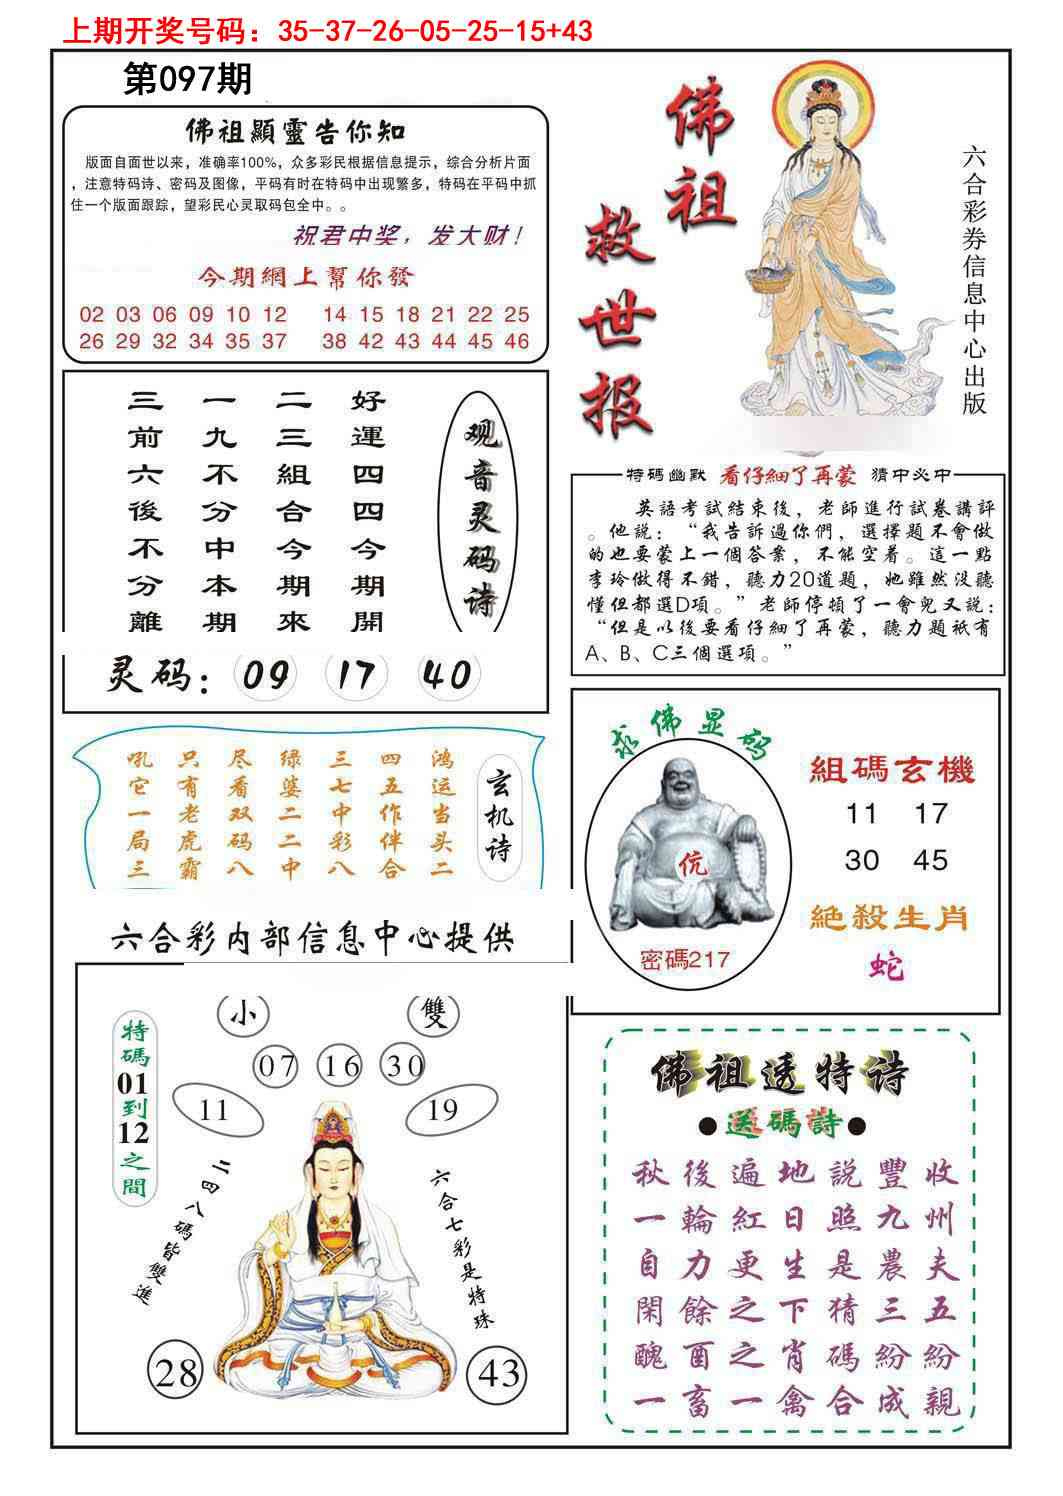 上期开奖号码：35-37-26-05-25-15+43
第097期
佛祖顯靈告你知
版面自面世以来，准确率100%，众多彩民根据信息提示，综合分析片面
，注意特码诗、密码及图像，平码有时在特码中出现繁多，特码在平码中抓
住一个版面跟踪，望彩民心灵取码包全中。。
祝君中奖，发大财！
今期網上幫你發
02 03 06 09 10 12 14 15 18 21 22 25
26 29 32 34 35 37 38 42 43 44 45 46
佛祖
救世报
六合彩券信息中心出版
观音灵码诗
好運四四今期開
二三組合今期來
一九不分中本期
三前六後不分離
灵码：09 17 40
特碼幽默 看仔細了再蒙 猜中必中
英語考試結束後，老師進行試卷講評
。他説：“我告訴過你們，選擇題不會做
的也要蒙上一個答案，不能空着。這一點
李玲做得不錯，聽力20道題，她雖然没聽
懂但都選D項。”老師停頓了一會兒又説：
“但是以後要看仔細了再蒙，聽力題祇有
A、B、C三個選項。”
玄机诗
鸿运当头二
四五作伴合
三七中彩八
绿婆二二中
尽看双码八
只有老虎霸
吼它一局三
求佛显码
伉
密碼217
組碼玄機
11 17
30 45
絕殺生肖
蛇
六合彩内部信息中心提供
特碼01到12之間
小 雙
07 16 30
11 19
二四八碼皆雙進
六合七彩是特珠
28 43
佛祖透特诗
●送碼詩●
秋後遍地説豐收
一輪紅日照九州
自力更生是農夫
閑餘之下猜三五
醜酉之肖碼紛紛
一畜一禽合成親